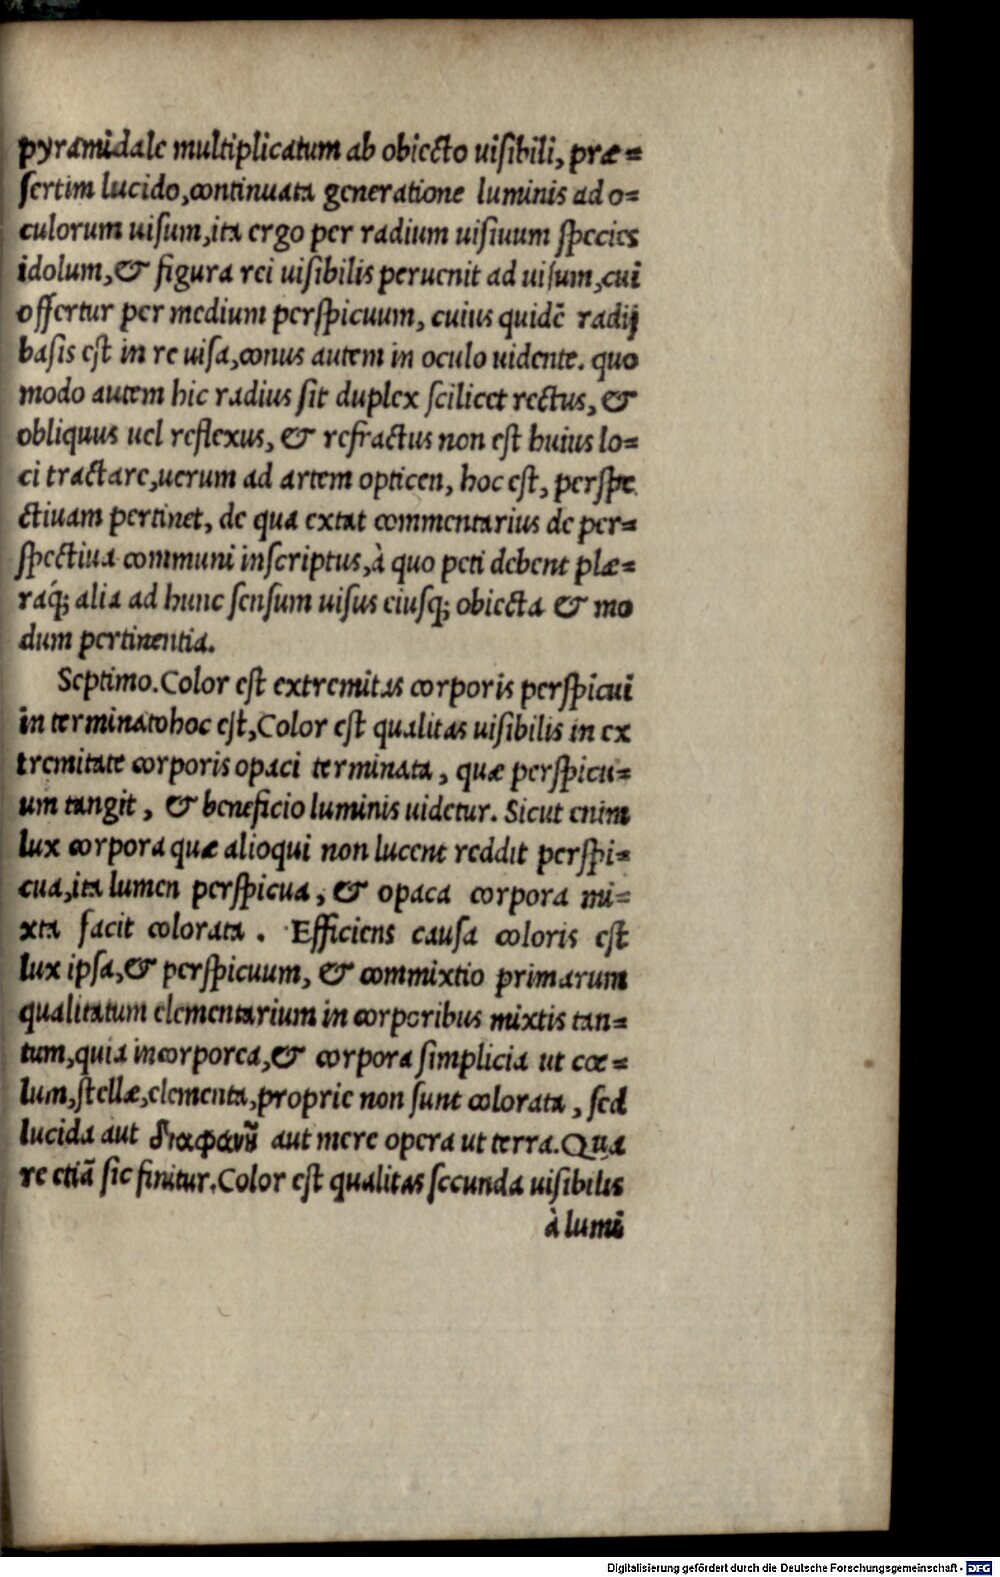 pyramidale multiplicatum ab obiecto uisibili, præ=
sertim lucido,continuata generatione luminis ad o=
culorum uisum,ita ergo per radium uisiuum species
idolum,& figura rei uisibilis peruenit ad uisum,cui
offertur per medium perspicuum, cuius quidē radij
basis est in re uisa,conus autem in oculo uidente. quo
modo autem hic radius sit duplex scilicet rectus, &
obliquus uel reflexus, & refractus non est huius lo=
ci tractare,uerum ad artem opticen, hoc est, perspe
ctiuam pertinet, de qua extat commentarius de per=
spectiua communi inscriptus,à quo peti debent plæ=
raq́; alia ad hunc sensum uisus eiusq; obiecta & mo
dum pertinentia.
Septimo.Color est extremitas corporis perspicui
in terminatohoc est,Color est qualitas uisibilis in ex
tremitate corporis opaci terminata, quæ perspicu=
um tangit, & beneficio luminis uidetur. Sicut enim
lux corpora quæ alioqui non lucent reddit perspi=
cua,ita lumen perspicua, & opaca corpora mi=
xta facit colorata. Efficiens causa coloris est
lux ipsa,& perspicuum, & commixtio primarum
qualitatum elementarium in corporibus mixtis tan=
tum,quia incorporea,& corpora simplicia ut cœ=
lum,stellæ,elementa,proprie non sunt colorata, sed
lucida aut διαφανῆ aut mere opera ut terra.Qua
re etiā sic finitur.Color est qualitas secunda uisibilis
à lumi
Digitalisierung gefördert durch die Deutsche Forschungsgemeinschaft - DFG